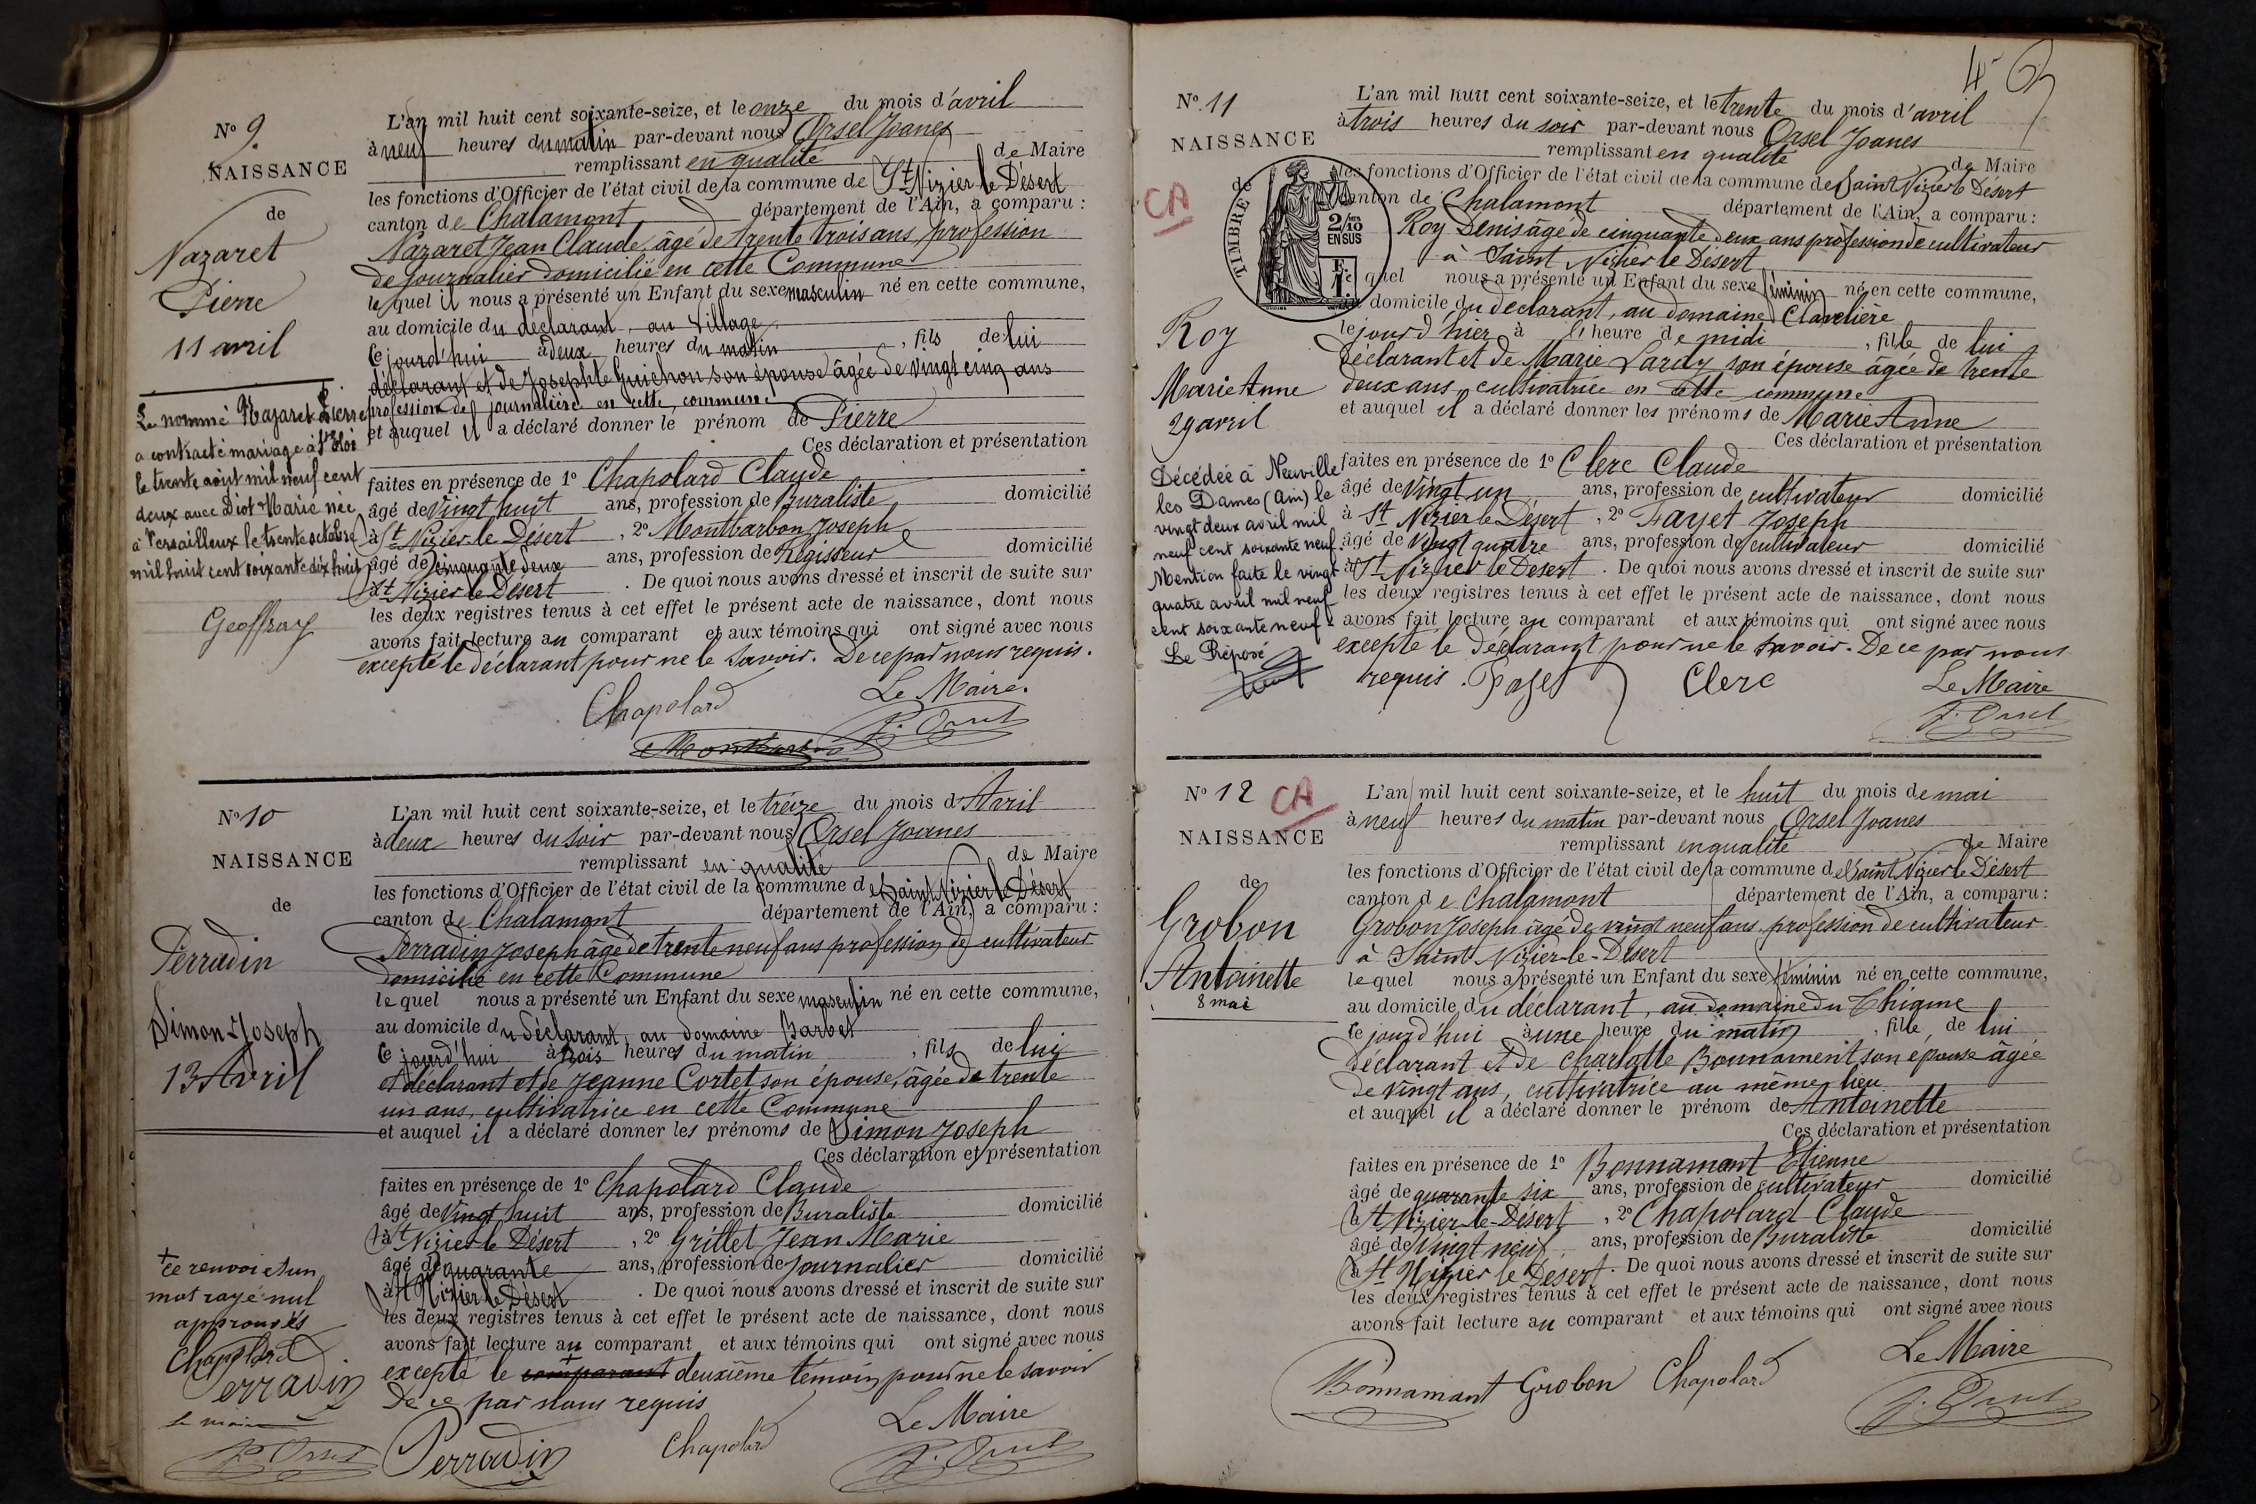 N° 9
NAISSANCE
de
Nazaret
Pierre
11 avril
Le nommé Nazaret Pierre
a contracté mariage à St Eloi
le trente août mil neuf cent
deux avec Diot Marie née
à Versailleux le trente octobre
mil huit cent soixante dix huit
Geoffray
L'an mil huit cent soixante-seize, et le onze du mois d'avril
à neuf heures du matin par-devant nous Orsel Joanes
remplissant en qualité de Maire
les fonctions d'Officier de l'état civil de la commune de St Nizier le Désert
canton de Chalamont département de l'Ain, a comparu :
Nazaret Jean Claude, âgé de trente trois ans, profession
de journalier domicilié en cette Commune
lequel il nous a présenté un Enfant du sexe masculin né en cette commune,
au domicile du déclarant, au Village
ce jourd'hui à deux heures du matin, fils de lui
déclarant et de Josephte Guichon son épouse âgée de vingt cinq ans
profession de journalière en cette commune
et auquel il a déclaré donner le prénom de Pierre
Ces déclaration et présentation
faites en présence de 1° Chapolard Claude
âgé de Vingt huit ans, profession de Buraliste domicilié
à St Nizier le Désert, 2° Montbarbon Joseph
âgé de cinquante deux ans, profession de Régisseur domicilié
à St Nizier le Désert. De quoi nous avons dressé et inscrit de suite sur
les deux registres tenus à cet effet le présent acte de naissance, dont nous
avons fait lecture au comparant et aux témoins qui ont signé avec nous
excepté le déclarant pour ne le savoir. De ce par nous requis.
Chapolard Le Maire.
Montbarbon J. Orsel
N° 10
NAISSANCE
de
Perradin
Simon-Joseph
13 Avril
+ ce renvoi et un
mot rayé nul
approuvés
Chapolard
Perradin
Le maire
J. Orsel
L'an mil huit cent soixante-seize, et le treize du mois d'Avril
à deux heures du soir par-devant nous Orsel Joanes
remplissant en qualité de Maire
les fonctions d'Officier de l'état civil de la commune de Saint Nizier le Désert
canton de Chalamont département de l'Ain, a comparu :
Perradin Joseph âgé de trente neuf ans profession de cultivateur
domicilié en cette Commune
lequel nous a présenté un Enfant du sexe masculin né en cette commune,
au domicile du déclarant, au domaine Barbet
ce jourd'hui à trois heures du matin, fils de lui
déclarant et de Jeanne Cortet son épouse, âgée de trente
un ans, cultivatrice en cette Commune
et auquel il a déclaré donner les prénoms de Simon Joseph
Ces déclaration et présentation
faites en présence de 1° Chapolard Claude
âgé de Vingt huit ans, profession de Buraliste domicilié
à St Nizier le Désert, 2° Grillet Jean Marie
âgé de quarante ans, profession de Journalier domicilié
à St Nizier le Désert. De quoi nous avons dressé et inscrit de suite sur
les deux registres tenus à cet effet le présent acte de naissance, dont nous
avons fait lecture au comparant et aux témoins qui ont signé avec nous
excepté le comparant + deuxième témoin pour ne le savoir
De ce par nous requis
Perradin Chapolard Le Maire
J. Orsel
N° 11
NAISSANCE
CA
TIMBRE de
2/10
EN SUS
Roy
Marie Anne
29 avril
Décédée à Neuville
les Dames (Ain) le
vingt deux avril mil
neuf cent soixante neuf.
Mention faite le vingt
quatre avril mil neuf
cent soixante neuf.
Le Préposé
L'an mil huit cent soixante-seize, et le trente du mois d'avril
à trois heures du soir par-devant nous Orsel Joanes
remplissant en qualité de Maire
les fonctions d'Officier de l'état civil de la commune de Saint Nizier le Désert
canton de Chalamont département de l'Ain, a comparu :
Roy Denis âgé de cinquante deux ans profession de cultivateur
à Saint Nizier le Désert
quel nous a présenté un Enfant du sexe féminin né en cette commune,
au domicile du déclarant, au domaine Clavelière
le jour d'hier à l'heure de midi, fille de lui
déclarant et de Marie Lardy son épouse âgée de trente
deux ans, cultivatrice en cette commune
et auquel il a déclaré donner les prénoms de Marie Anne
Ces déclaration et présentation
faites en présence de 1° Clerc Claude
âgé de Vingt un ans, profession de cultivateur domicilié
à St Nizier le Désert, 2° Fayet Joseph
âgé de Vingt quatre ans, profession de cultivateur domicilié
à St Nizier le Désert. De quoi nous avons dressé et inscrit de suite sur
les deux registres tenus à cet effet le présent acte de naissance, dont nous
avons fait lecture au comparant et aux témoins qui ont signé avec nous
excepté le déclarant pour ne le savoir. De ce par nous
requis. Fayet Clerc Le Maire
J. Orsel
N° 12
CA
NAISSANCE
de
Grobon
Antoinette
8 mai
L'an mil huit cent soixante-seize, et le huit du mois de mai
à neuf heures du matin par-devant nous Orsel Joanes
remplissant en qualité de Maire
les fonctions d'Officier de l'état civil de la commune de Saint Nizier le Désert
canton de Chalamont département de l'Ain, a comparu :
Grobon Joseph âgé de vingt neuf ans, profession de cultivateur
à Saint Nizier-le-Désert
lequel nous a présenté un Enfant du sexe féminin né en cette commune,
au domicile du déclarant, au domaine du
ce jourd'hui à une heure du matin, fille de lui
déclarant et de Charlotte Bonnament son épouse âgée
de vingt ans, cultivatrice au même lieu
et auquel il a déclaré donner le prénom de Antoinette
Ces déclaration et présentation
faites en présence de 1° Bonnamant Etienne
âgé de quarante six ans, profession de cultivateur domicilié
à St Nizier-le-Désert, 2° Chapolard Claude
âgé de Vingt neuf ans, profession de Buraliste domicilié
à St Nizier le Désert. De quoi nous avons dressé et inscrit de suite sur
les deux registres tenus à cet effet le présent acte de naissance, dont nous
avons fait lecture au comparant et aux témoins qui ont signé avec nous
Le Maire
Bonnamant Grobon Chapolard
J. Orsel